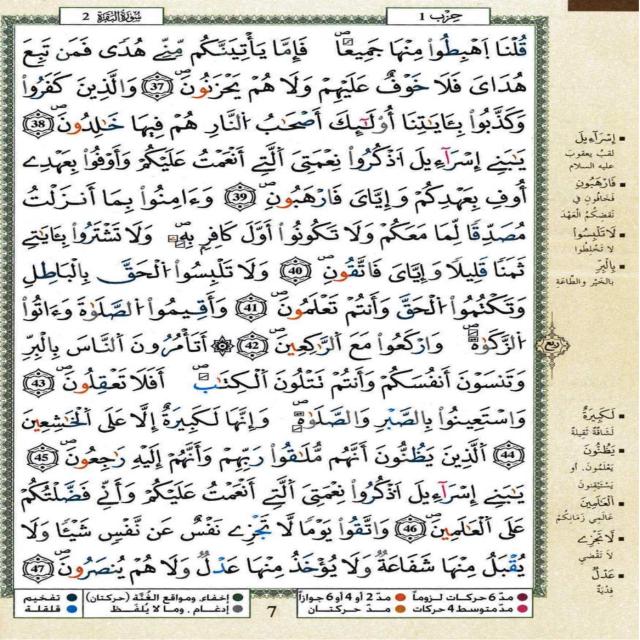 حِزْب 1
سُورَةُ الْبَقَرَةِ 2
قُلْنَا اَهْبِطُواْ مِنْهَا جَمِيعاً فَإِمَّا يَأْتِيَنَّكُم مِّنِّے هُدًى فَمَن تَبِعَ
هُدَايَ فَلَا خَوْفٌ عَلَيْهِمْ وَلَا هُمْ يَحْزَنُونَ 37 وَالذِينَ كَفَرُواْ
وَكَذَّبُواْ بِـَٔايَٰتِنَا أُوْلَٰٓئِكَ أَصْحَٰبُ النَّارِ هُمْ فِيهَا خَٰلِدُونَ 38
يَٰبَنِے إِسْرَآءِيلَ اَذْكُرُواْ نِعْمَتِيَ اَلتِے أَنْعَمْتُ عَلَيْكُمْ وَأَوْفُواْ بِعَهْدِے
أُوفِ بِعَهْدِكُمْ وَإِيَّٰيَ فَارْهَبُونِ 39 وَءَامِنُواْ بِمَا أَنزَلْتُ
مُصَدِّقاً لِّمَا مَعَكُمْ وَلَا تَكُونُواْ أَوَّلَ كَافِرِۭ بِهِۦ وَلَا تَشْتَرُواْ بِـَٔايَٰتِے
ثَمَناً قَلِيلاً وَإِيَّٰيَ فَاتَّقُونِ 40 وَلَا تَلْبِسُواْ الْحَقَّ بِالْبَٰطِلِ
وَتَكْتُمُواْ الْحَقَّ وَأَنتُمْ تَعْلَمُونَ 41 وَأَقِيمُواْ الصَّلَوٰةَ وَءَاتُواْ
الزَّكَوٰةَ وَارْكَعُواْ مَعَ الرَّٰكِعِينَ 42 أَتَأْمُرُونَ النَّاسَ بِالْبِرِّ
وَتَنسَوْنَ أَنفُسَكُمْ وَأَنتُمْ تَتْلُونَ الْكِتَٰبَ أَفَلَا تَعْقِلُونَ 43
وَاسْتَعِينُواْ بِالصَّبْرِ وَالصَّلَوٰةِ وَإِنَّهَا لَكَبِيرَةٌ اِلَّا عَلَى الْخَٰشِعِينَ
44 الَّذِينَ يَظُنُّونَ أَنَّهُم مُّلَٰقُواْ رَبِّهِمْ وَأَنَّهُمْ إِلَيْهِ رَٰجِعُونَ 45
يَٰبَنِے إِسْرَآءِيلَ اَذْكُرُواْ نِعْمَتِيَ اَلتِے أَنْعَمْتُ عَلَيْكُمْ وَأَنِّے فَضَّلْتُكُمْ
عَلَى الْعَٰلَمِينَ 46 وَاتَّقُواْ يَوْماً لَّا تَجْزِے نَفْسٌ عَن نَّفْسٍ شَيْـٔاً وَلَا
يُقْبَلُ مِنْهَا شَفَٰعَةٌ وَلَا يُؤْخَذُ مِنْهَا عَدْلٌ وَلَا هُمْ يُنصَرُونَ 47
إِسْرَآءِيلَ
لقبُ يعقوبَ
عليه السلام
فَارْهَبُونِ
فَخَافُونِ فِي
نَقْضِكُمُ الْعَهْدَ
لَا تَلْبِسُواْ
لَا تَخْلِطُوا
بِالْبِرِّ
بِالخَيْرِ والطَّاعَةِ
ربع
لَكَبِيرَةٌ
لَشَاقَّةٌ ثَقِيلَةٌ
يَظُنُّونَ
يَعْلَمُونَ. أو
يَسْتَيْقِنُونَ
الْعَٰلَمِينَ
عَالَمِي زَمَانِكُمْ
لَا تَجْزِے
لَا تَقْضِي
عَدْلٌ
فِدْيَةٌ
مدّ 6 حركات لزوماً
مدّ 2 أو 4 أو 6 جوازاً
إخفاء، ومواقع الغُنَّة (حركتان)
تفخيم
مدّ متوسط 4 حركات
مدّ حركتان
إدغام، وما لا يُلفَظ
قلقلة
7